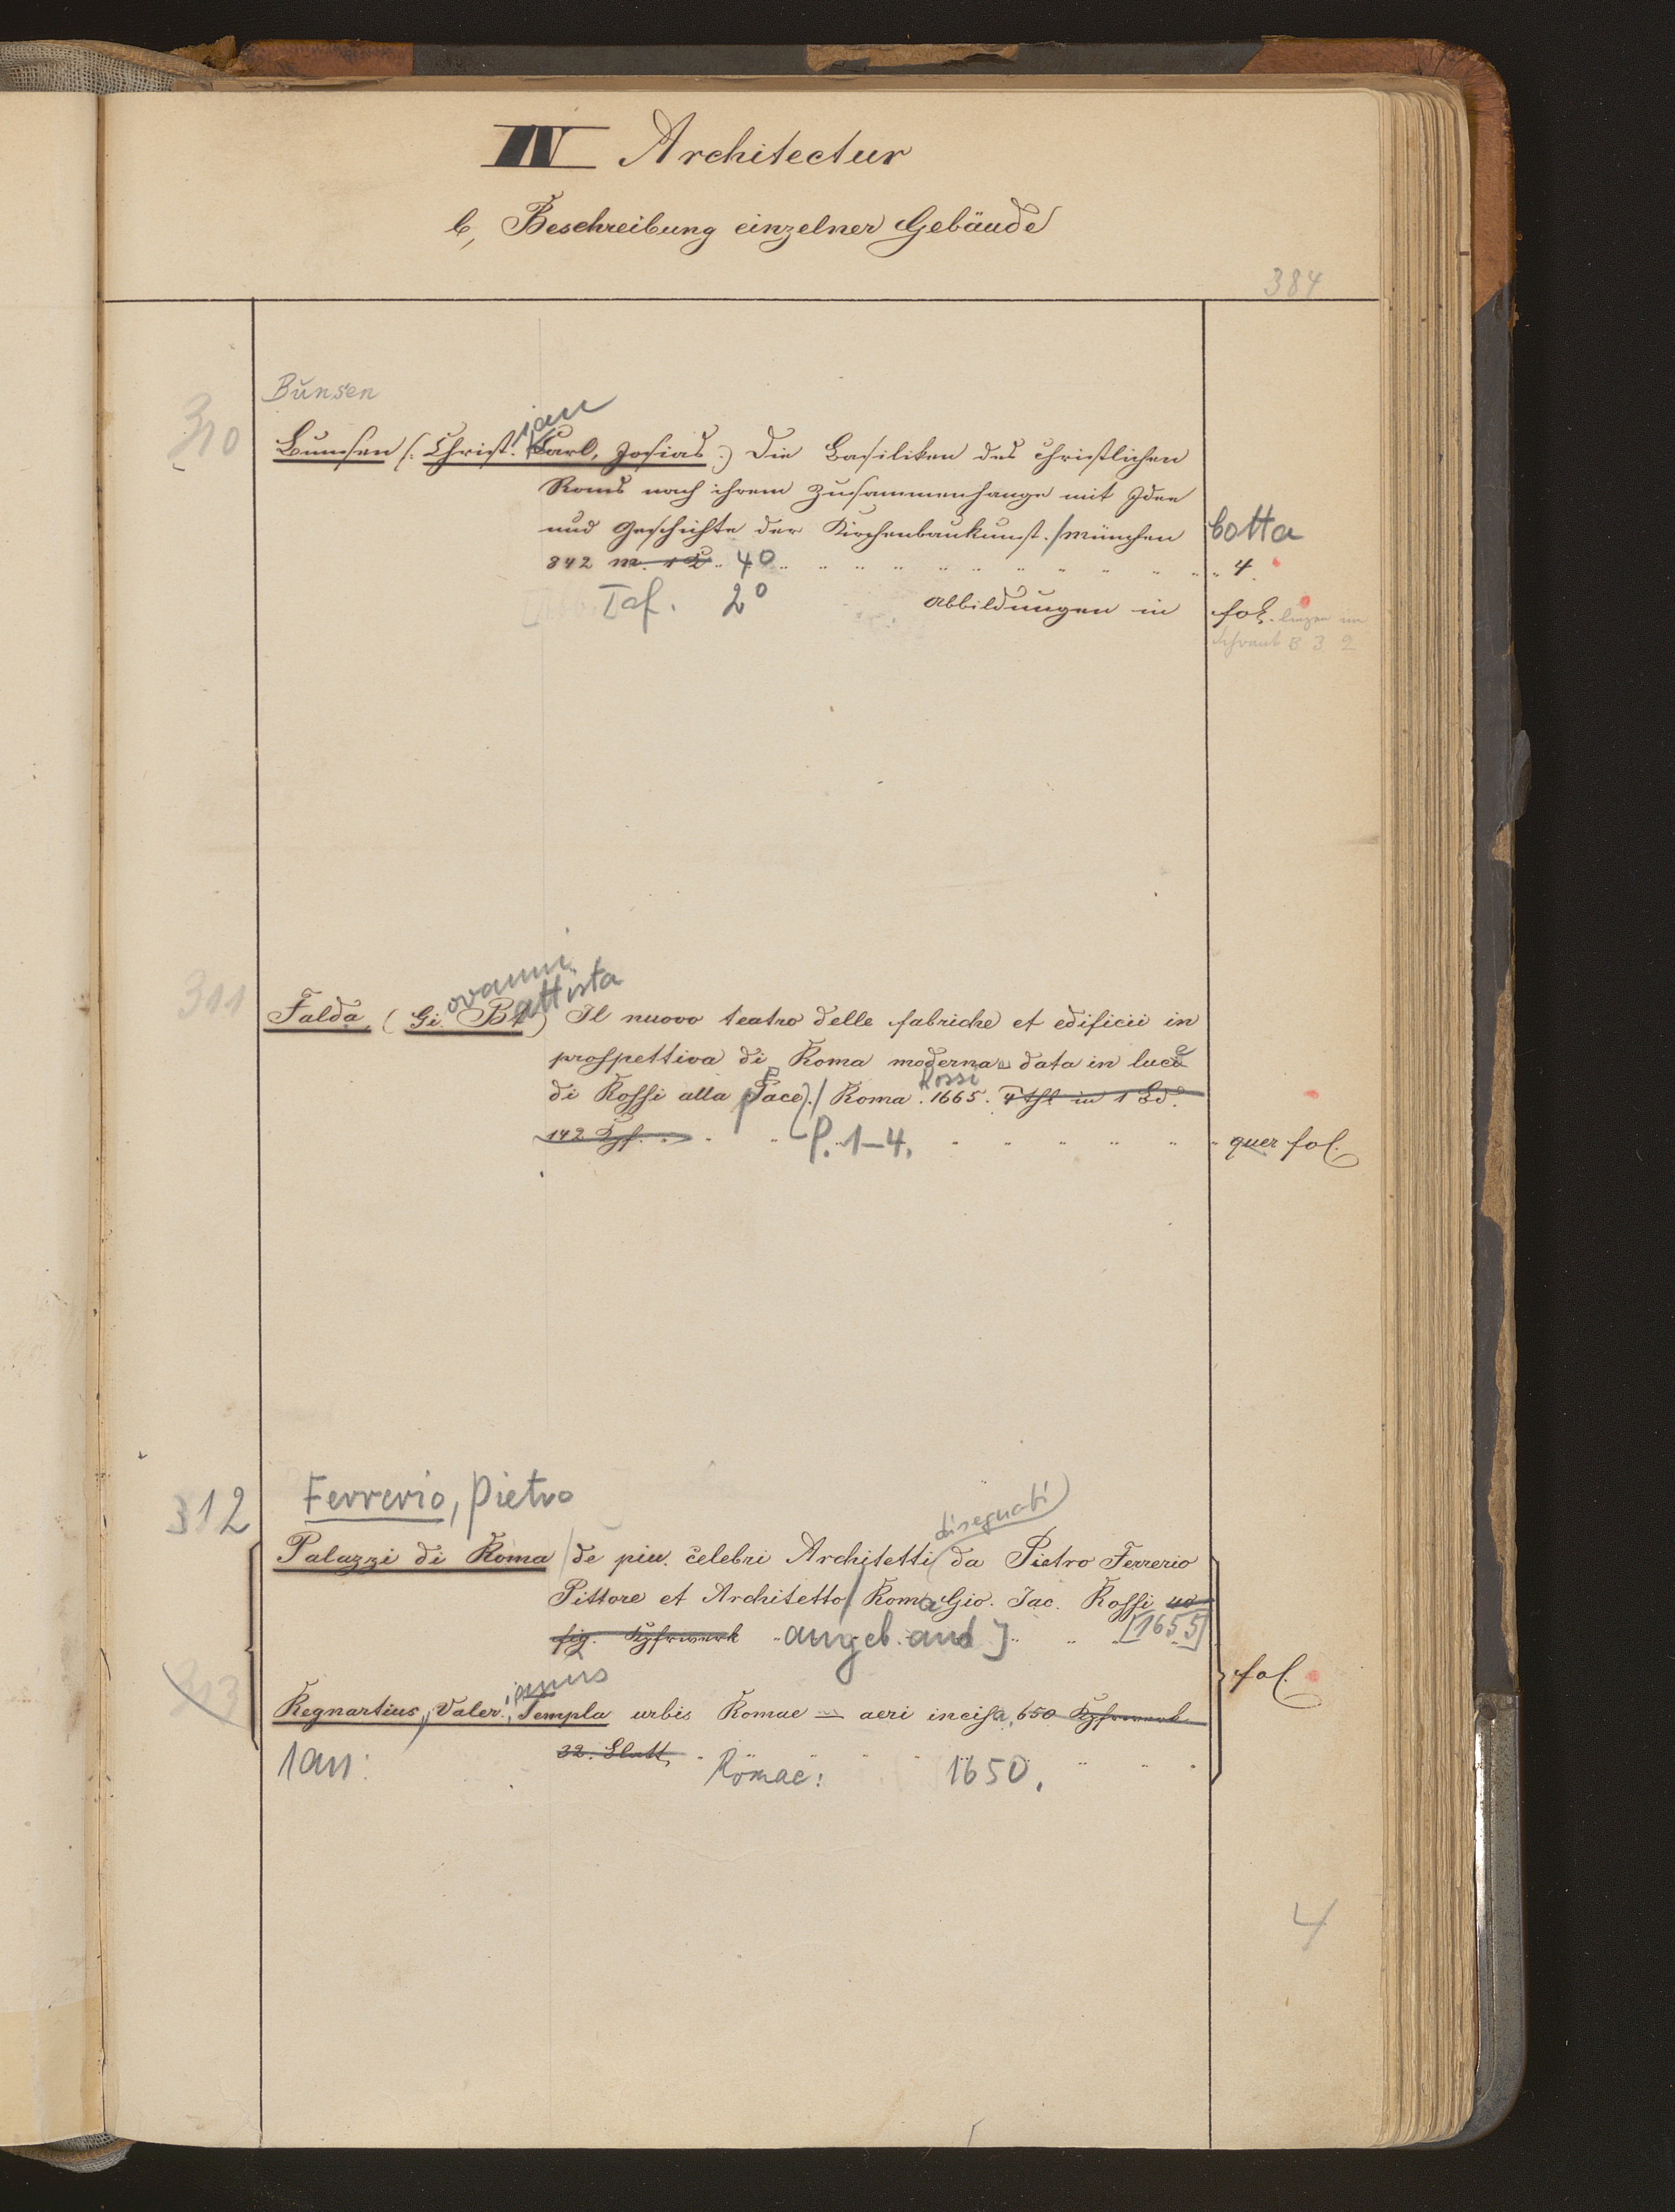 IV Architectur
b, Beschreibung einzelner Gebäude
384
Bunsen
310
ian
Bunsen (: Christ. Carl, Josias :) Die Basiliken des christlichen
Roms nach ihrem Zusammenhange mit Idee
und Geschichte der Kirchenbaukunst. / München Cotta
842 m. 40 " " " " " " " " " " " 4.
Taf. 2° Abbildungen in fol. liegen im
Schrank B 3 2
ovanni attista
311 Falda, (Gi. Bt) Il nuovo teatro delle fabriche et edificii in
prospettiva di Roma moderna data in luce
Rossi
di Rossi alla Pace). / Roma. 1665. 4 Thl in 1 Bd.
142 Kpf. " " P. 1-4. " " " " " " quer fol.
312 Ferrerio, Pietro
disegnati
Palazzi di Roma / de piu celebri Architetti da Pietro Ferrerio
Pittore et Architetto / Roma Gio. Jac. Rossi
fig. Kpfrwerk " angeb. and ] " " [1655]
fol.
313
ianus
Regnartius, Valer., Templa urbis Romae — aeri incisa, 650 Kpfrwerk
32. Blatt, " " " " " " " "
1 an: Romae: 1650.
4